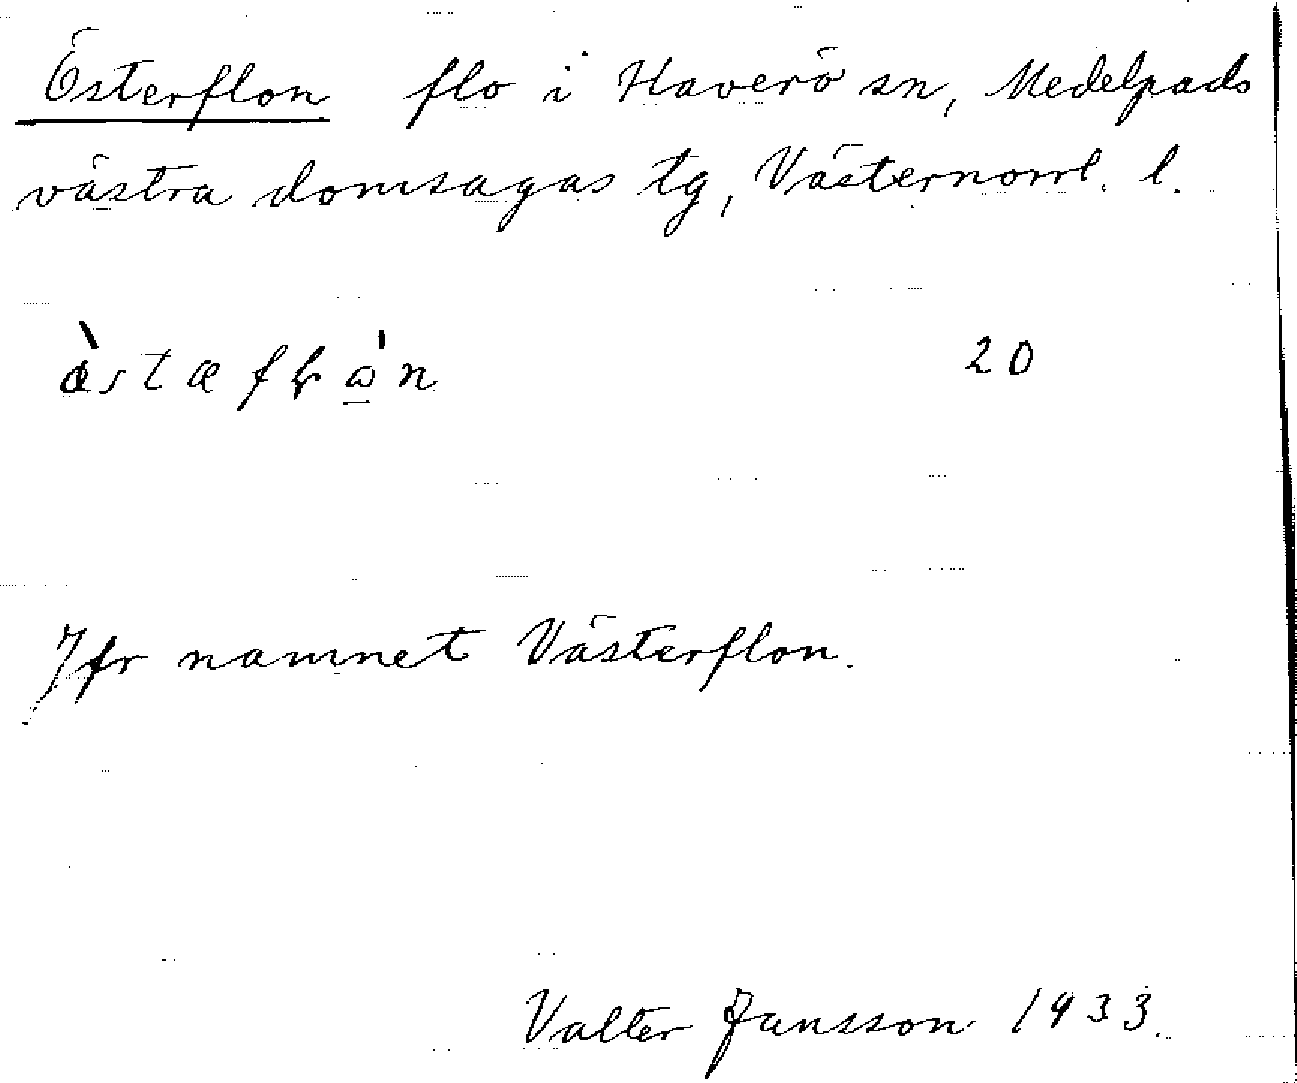 Österflon flo i Haverö sn, Medelpads
västra domsagas tg, Västernorrl. l.
20
Jfr namnet Västerflon.
Valter Jansson 1933.